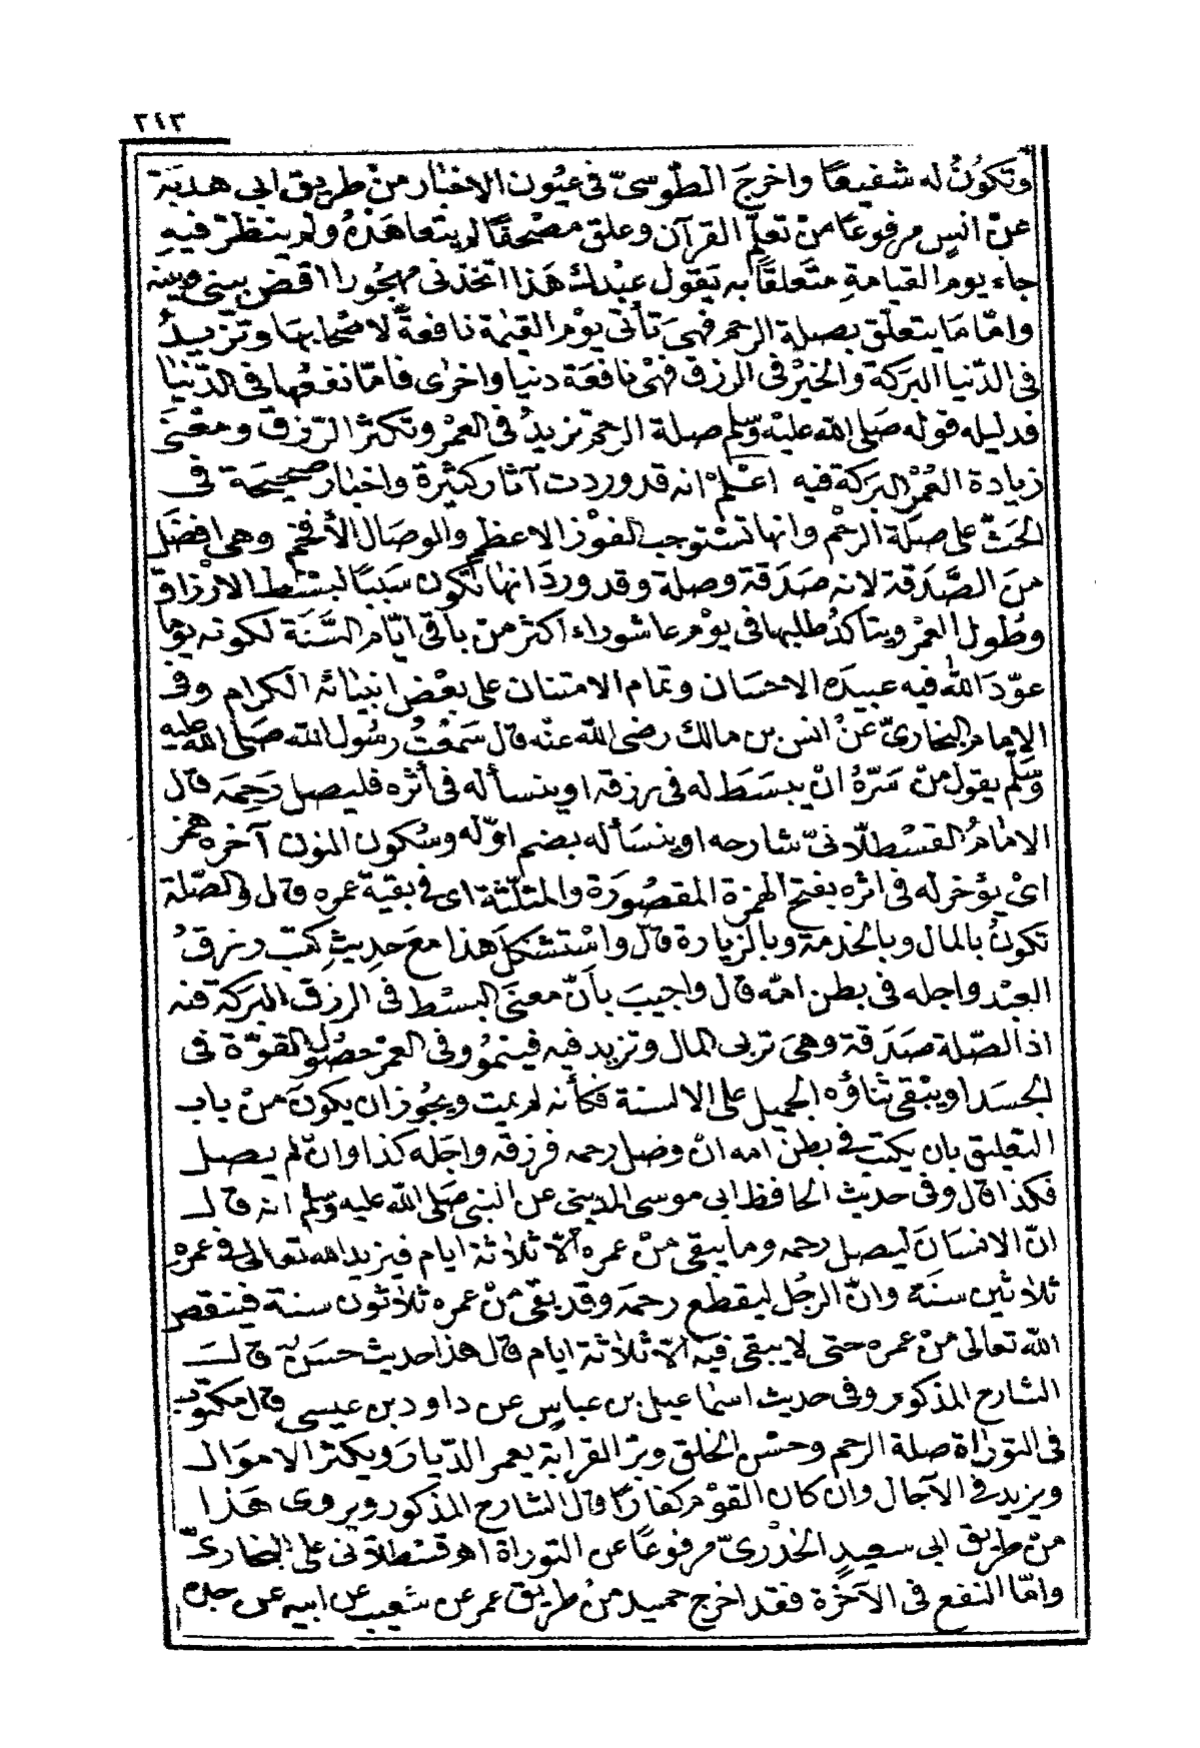 ٢٤٣
وتكونُ له شفيعًا واخرجَ الطّوسىّ فى عيُون الاخبار منْ طريق ابى هدبَة
عنْ انسٍ مرفوعًا منْ تعلّم القرآن وعلق مصْحفًا لم يتعاهدْهُ ولم ينظرْ فيهِ
جاء يوم القيامةِ متعَلّقًا به يَقول عبْدك هَذا اتّخذنى مهجُورا اقض بينى وبينه
وامّا مَا يتعلّق بصلة الرحم فهىَ تأتى يوْم القيٰمة نافعةً لاصْحابهَا وتزيدُ
فى الدّنيا البركة والخيْر فى الرزق فهىْ نافعَة دنيا واخرٰى فامّا نفعُها فى الدّنيٰا
فدليله قوله صَلى الله عليْه وسّلم صلة الرحم تزيدُ فى العمْر وتكثر الرّزق ومعْنىَ
زيادة العُمْر البَركة فيه اعْلمْ انه قد وردت آثار كثيرة واخبار صَحيحَة فى
الحَثّ على صلَة الرحْم وانها تسْتوجب الفوْز الاعظم والوصَال الأفخم وهى افضَل
منَ الصَّدَقة لانه صَدَقة وصلة وقد وردَ انها تكون سَببًا لبسْط الارْزاق
وطُول العمْر ويتاكدُ طلبها فى يوْم عاشوراء اكثر منْ باقى ايّام السَّنَة لكونه يوما
عوّدَ اللهُ فيه عبيدَه الاحسَان وتمام الامتنان على بعْض انبيٰائه الكرام وفى
الامام البخارىّ عَنْ انس بن مالك رضى الله عنْه قال سَمعْتُ رسُول الله صَلى الله عليه
وسَلم يقول منْ سَرّهُ انْ يبسَط له فى رزقه او ينسأ له فى أثره فليصل رَحِمَه قال
الامامُ القسْطلّانىّ شارحه او ينسَأ له بضم اوّله وسُكون النون آخرَه همز
اىْ يؤخر له فى اثره بفتح الهمزة المقصُورَة والمثلّثة اى فى بقية عمره قال والصّلة
تكونُ بالمال وبالخدمة وبالزيارة قال واسْتشكلَ هذا معَ حديثِ كتب رزقُ
العبْد واجله فى بطن امّه قال واجيبَ بأنّ معنىَ البسْط فى الرزق البركة فيه
اذ الصّلة صَدَقة وهىَ تربى المال وتزيد فيه فينمُو وفى العمْر حصُول القوّة فى
الجَسَد او يبْقى ثناؤه الجميل على الالسنة فكأنه لم يمت ويجُوز ان يكونَ منْ باب
التعليق بان يكتب فى بطن امه انْ وصَل رحمه فرزقه واجَله كذا وانْ لم يصل
فكذا قال وفى حديث الحافظ ابى موسى المدينى عن النبى صَلى الله عليه وسلم انه قال
انّ الانسَانَ ليصل رحمه وما يبقى منْ عمره الّا ثلاثة ايام فيزيد الله تعالى فى عمره
ثلاثين سنَة وانّ الرجُل ليقطع رحمَه وقد بقى منْ عمره ثلاثون سنة فينقص
الله تعالى منْ عمره حتى لا يبقى فيه الّا ثلاثة ايام قال هذا حديث حسَن قالـ
الشارح المذكور وفى حديث اسماعيل بن عباسٍ عن داود بن عيسى قال مكتوب
فى التوراة صلة الرحم وحسْن الخلق وبرّ القرابة يعمر الدّيار ويكثر الاموال
ويزيد فى الآجال وان كان القوْم كفارًا قال الشارح المذكور ويروى هَذا
منْ طريق ابى سعيدٍ الخدْرىّ مرفوعًا عن التوراة اهـ قسْطلانى على البخارىّ
وامّا النفع فى الآخرة فقد اخرج حميد منْ طريق عمر عن شعيب عن ابيه عن جده